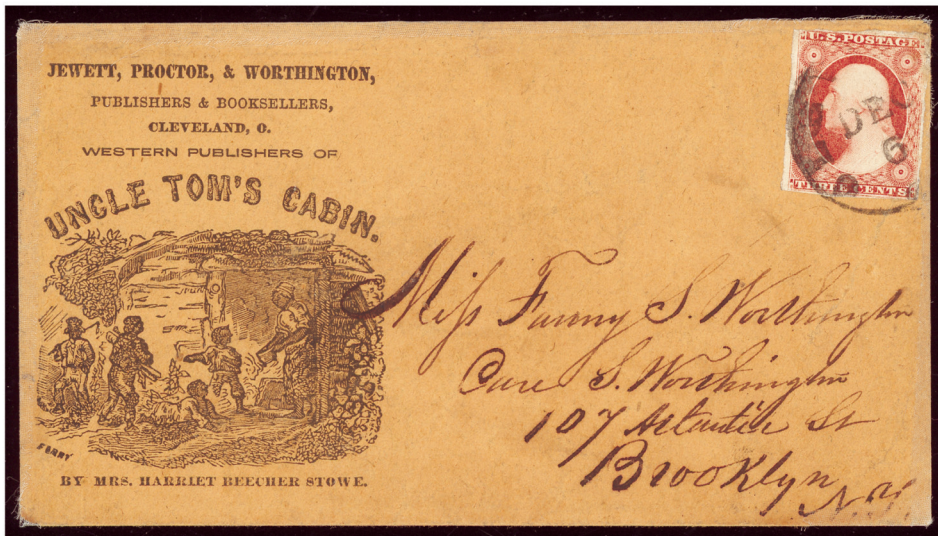 JEWETT, PROCTOR, & WORTHINGTON,
PUBLISHERS & BOOKSELLERS,
CLEVELAND, O.
WESTERN PUBLISHERS OF
UNCLE TOM'S CABIN.
BY MRS. HARRIET BEECHER STOWE.
U.S. POSTAGE
DEC
6
THREE CENTS
Miss Fanny S. Worthington
Care S. Worthington
107 Atlantic St
Brooklyn
N.Y.